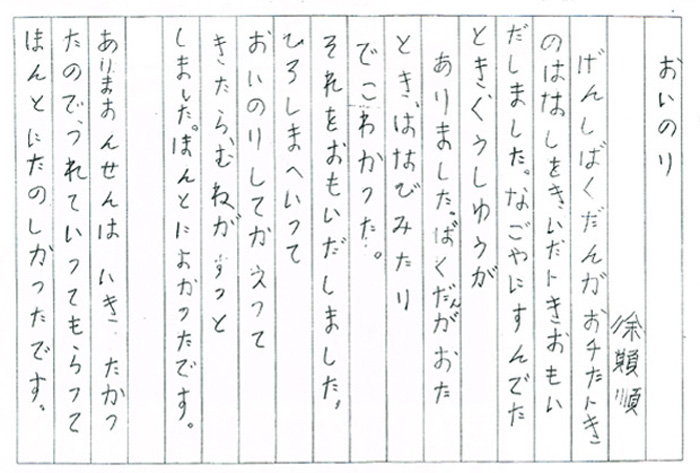 おいのり
徐頼順
げんしばくだんがおチたトき
のはなしをきいだトきおもい
だしました。なごやにすんでた
ときくうしゆうが
ありました。ばくだんがおた
とき、はなびみたり
でこわかつた。
それをおもいだしました。
ひろしまへいって
おいのりしてかえつて
きたら、むねがすつと
しました。ほんとによかつたです。
ありまおんせんはいきたかつ
たので、つれていつてもらつて
ほんとにたのしかつたです。